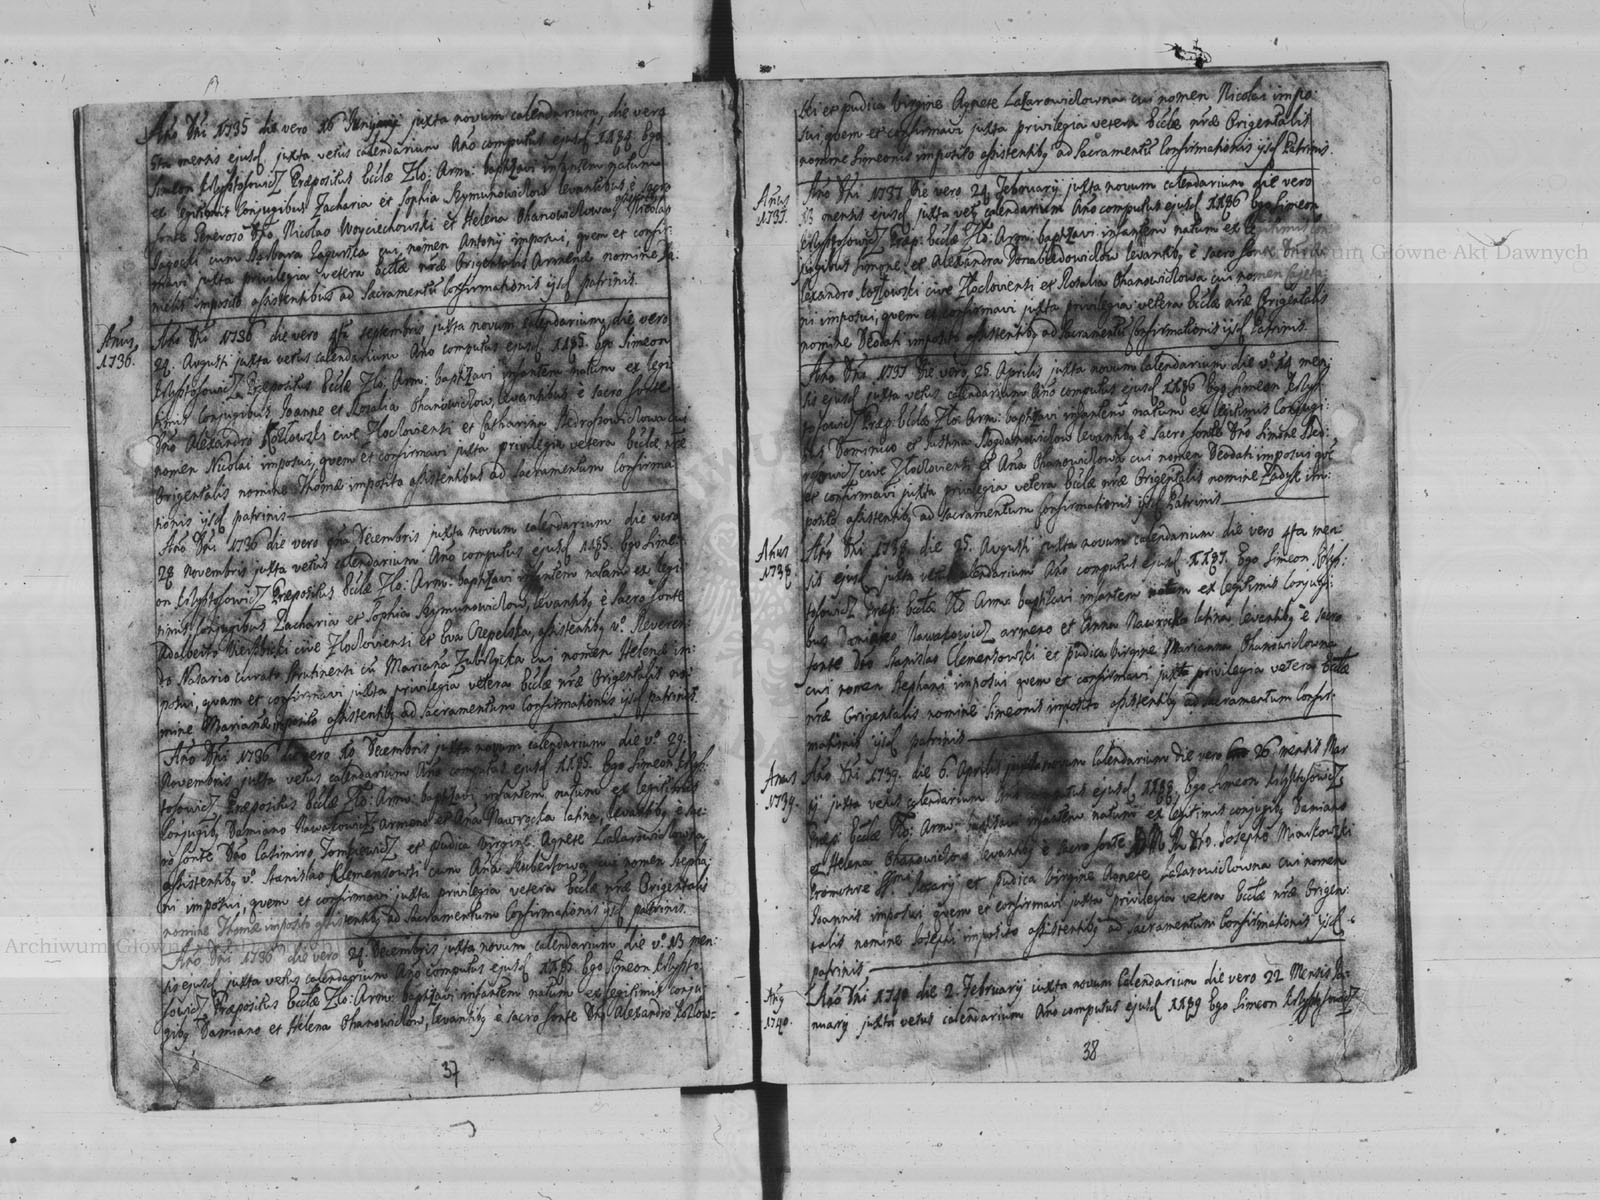 Año Dñi 1735 die vero 16 juxta novum calendarium, die vero
5ta mensis ejusd juxta vetus calendarium Año computus ejusd 1184 Ego
Simeon Krzysztofowicz Præpositus Eccłæ Zło: Arm: baptizavi infantem natum
ex legitimis Conjugibus Zacharia et Sophia Szymunowiclow levantibus è sacro
fonte Generoso Dño Nicolao Woyciechowski et Helena Ohanowiclowa Nicolao
Jagocki cum Barbara Zagurska cui nomen Antonij imposui, quem et confir
mavi juxta privilegia vetera Eccłæ nræ Origentalis Armenæ nomine
imposito assistentibus ad Sacramentũ Confirmationis ijsd patrinis.
Anus
1736.
Año Dñi 1736 die vero 4ta septembris juxta novum calendarium, die vero
24. Avgusti juxta vetus calendarium Año computus ejusd 1185. Ego Simeon
Krzysztofowicz Præpositus Eccłæ Zło: Arm: baptizavi infantem natum ex legi
timis Conjugibus Joanne et Rosalia Ohanowiclow, levantibus è sacro fonte
Dño Alexandro Kozłowski cive Złocloviensi et Catharina Hedrosowiclowa cui
nomen Nicolai imposui, quem et confirmavi juxta privilegia vetera Eccłæ nræ
Origentalis nomine Thomæ imposito assistentibus ad sacramentum Confirma
tionis ijsd patrinis
Año Dñi 1736 die vero 9na Decembris juxta novum calendarium die vero
28 novembris juxta vetus calendarium Año computus ejusd 1185. Ego Sime:
on Krzysztofowicz Præpositus Eccłæ Zło: Arm: baptizavi infantem natam ex legi:
timis Conjugibus Zacharia et Sophia Szymunowiclow, levantibg è sacro fonte
Adalberto cive Złocloviensi et Eva Czepelska, assistentibg vº Reveren:
do Nasario curato cũ Marianna Zubrzycka cui nomen Helenæ im:
posui, quam et confirmavi juxta privilegia vetera Eccłæ nræ Origentalis no:
mine Mariannæ imposito assistentibg ad sacramentum Confirmationis ijsd patrinis.
Año Dñi 1736 die vero 10 Decembris juxta novum calendarium die vº 29.
Novembris juxta vetus calendarium Año computus ejusd 1185. Ego Simeon Krzys:
tofowicz Præpositus Eccłæ Zło: Arm: baptizavi infantem natum ex legitimis
Conjugibg Damiano Nawakowicz Armeno et Ana Nawrocka latina, levantibg è sac:
ro fonte Dño Casimiro Tomkiewicz et pudica virgine Agnete Lazarowiclowna,
assistentibg vº Stanislao Klemensowski cum Ana Hubertowa, cui nomen Stepha:
ni imposui, quem et confirmavi juxta privilegia vetera Eccłæ nræ Origentalis
nomine Thomæ imposito assistentibg ad Sacramentum Confirmationis ijsd patrinis.
Año Dñi 1736 die vero 24 Decembris juxta novum calendarium, die vº 13 men:
sis ejusd juxta vetus calendarium Año computus ejusd 1185 Ego Simeon Krzyszto:
fowicz Præpositus Eccłæ Zło: Arm: baptizavi infantem natum ex legitimis conju
gibg Damiano et Helena Ohanowiclow, levantibg è sacro fonte Dño Alexandro Kozłow=
37
ski et pudica virgine Agnete Lazarowiclowna cui nomen Nicolai impo:
sui quem et confirmavi juxta privilegia vetera Eccłæ nræ Origentalis
nomine Simeonis imposito assistentibg ad Sacramentũ Confirmationis ijsd Patrinis.
Anus
1737.
Año Dñi 1737 die vero 24 Februarij juxta novum calendarium die vero
13 mensis ejusd juxta vetg calendarium Año computus ejusd 1186 Ego Simeon
Krzysztofowicz Præp: Eccłæ Zło: Arm: baptizavi infantem natum ex legitimis con
jugibus Simone et Alexandra levantibg è sacro fonte Dño
lexandro Kozłowski cive Złocloviensi et Rosalia Ohanowiclowa cui nomen Cajeta:
ni imposui, quem et confirmavi juxta privilegia vetera Eccłæ nræ Origentalis
nomine Deodati imposito assistentibg ad sacramentũ Confirmationis ijsd Patrinis.
Año Dñi 1737 die vero 25. Aprilis juxta novum calendarium die vº 14 men:
sis ejusd juxta vetus calendarium Año computus ejusd 1186 Ego Simeon Krzys:
tofowicz Præp: Eccłæ Zło: Arm: baptizavi infantem natum ex legitimis Conjugi:
bus Dominico et Justina Bogdanowiclow levantibg è sacro fonte Dño Simone
cive Złocloviensi et Ana Ohanowiclowa cui nomen Deodati imposui quẽ
et confirmavi juxta privilegia vetera Eccłæ nræ Origentalis nomine Zadyk im:
posito assistentibg ad sacramentum Confirmationis ijsd Patrinis
Anus
1738
Año Dñi 1738 die 25. Avgusti juxta novum calendarium die vero 4ta men
sis ejusd juxta vetus calendarium Año computus ejusd 1187. Ego Simeon Krzys:
tofowicz Præp: Eccłæ Zło Arm baptizavi infantem natum ex legitimis Conjugi:
bus Nawakowicz armeno et Anna Nawrocka latina, levantibg è sacro
fonte Dño Stanislao Clemensowski et pudica virgine Marianna Ohanowiclowna
cui nomen Stephani imposui quem et confirmavi juxta privilegia vetera Eccłæ
nræ Origentalis nomine Simeonis imposito assistentibg ad sacramentum Confir:
mationis ijsd patrinis
Anus
1739.
Año Dñi 1739. die 6. Aprilis juxta novum Calendarium die vero 26 mensis Mar
tij juxta vetus calendarium ejusd 1188 Ego Simeon Krzysztofowicz
Præp: Eccłæ Zło: Arm: baptizavi infantem natum ex legitimis conjugibg Damiano
et Helena Ohanowiclow levantibg è sacro fonte Dño. Josepho Miaskowski
Promotore Rosarij et pudica virgine Agnete Lazarowiclowna cui nomen
Joannis imposui quem et confirmavi juxta privilegia vetera Eccłæ nræ Origen:
talis nomine Josephi imposito assistentibg ad sacramentum Confirmationis ijsd
patrinis
Ang
1740.
Año Dñi 1740 die 2 February juxta novum Calendarium die vero 22 Mensis Ja:
nuary juxta vetus calendarium Año computus ejusd 1189 Ego Simeon Krzysztofowicz
38
Archiwum Główne Akt Dawnych
Archiwum Główne Akt Dawnych